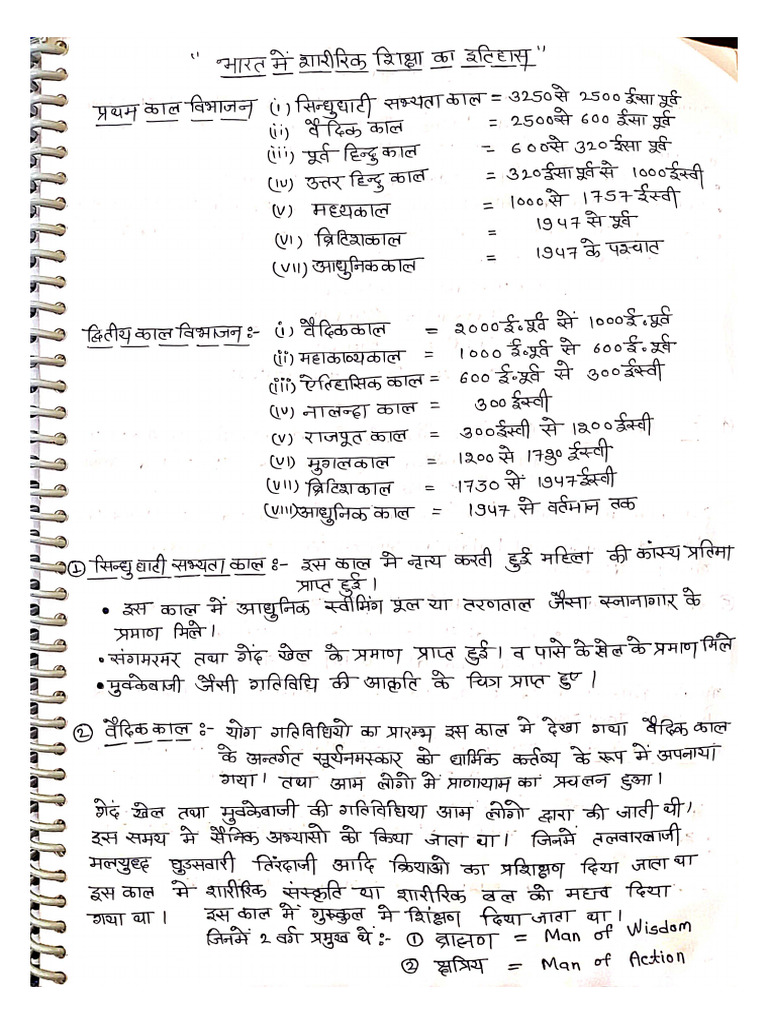 " भारत में शारीरिक शिक्षा का इतिहास "
प्रथम काल विभाजन (i) सिन्धुघाटी सभ्यता काल = 3250 से 2500 ईसा पूर्व
(ii) वैदिक काल = 2500 से 600 ईसा पूर्व
(iii) पूर्व हिन्दु काल = 600 से 320 ईसा पूर्व
(iv) उत्तर हिन्दु काल = 320 ईसा पूर्व से 1000 ईस्वी
(v) मध्यकाल = 1000 से 1757 ईस्वी
(vi) ब्रिटिशकाल = 1947 से पूर्व
(vii) आधुनिककाल = 1947 के पश्चात
द्वितीय काल विभाजन :- (i) वैदिककाल = 2000 ई॰ पूर्व सें 1000 ई॰ पूर्व
(ii) महाकाव्यकाल = 1000 ई॰ पूर्व से 600 ई॰ पूर्व
(iii) ऐतिहासिक काल = 600 ई॰ पूर्व से 300 ईस्वी
(iv) नालन्दा काल = 300 ईस्वी
(v) राजपूत काल = 300 ईस्वी से 1200 ईस्वी
(vi) मुगलकाल = 1200 से 1730 ईस्वी
(vii) ब्रिटिशकाल = 1730 से 1947 ईस्वी
(viii) आधुनिक काल = 1947 से वर्तमान तक
① सिन्धु घाटी सभ्यता काल :- इस काल मे नृत्य करती हुई महिला की कांस्य प्रतिमा
प्राप्त हुई।
• इस काल में आधुनिक स्वीमिंग पूल या तरणताल जैसा स्नानागार के
प्रमाण मिले।
• संगमरमर तथा गेंद खेल के प्रमाण प्राप्त हुई। व पासे के खेल के प्रमाण मिले
• मुक्केबाजी जैसी गतिविधि की आकृति के चित्र प्राप्त हुए।
② वैदिक काल :- योग गतिविधियो का प्रारम्भ इस काल मे देखा गया वैदिक काल
के अन्तर्गत सूर्यनमस्कार को धार्मिक कर्तव्य के रूप में अपनाया
गया। तथा आम लोगो मे प्राणायाम का प्रचलन हुआ।
गेदं खेल तथा मुक्केबाजी की गतिविधिया आम लोगो द्वारा की जाती थी।
इस समय मे सैनिक अभ्यासो को किया जाता था। जिनमें तलवारबाजी
मलयुध्द घुडसवारी तिंरदाजी आदि क्रियाओ का प्रशिक्षण दिया जाता था
इस काल मे शारीरिक संस्कृति या शारीरिक बल को महत्व दिया
गया था। इस काल में गुरुकुल मे शिक्षण दिया जाता था।
जिनमें 2 वर्ग प्रमुख थें :- ① ब्राह्मण = Man of Wisdom
② क्षत्रिय = Man of Action